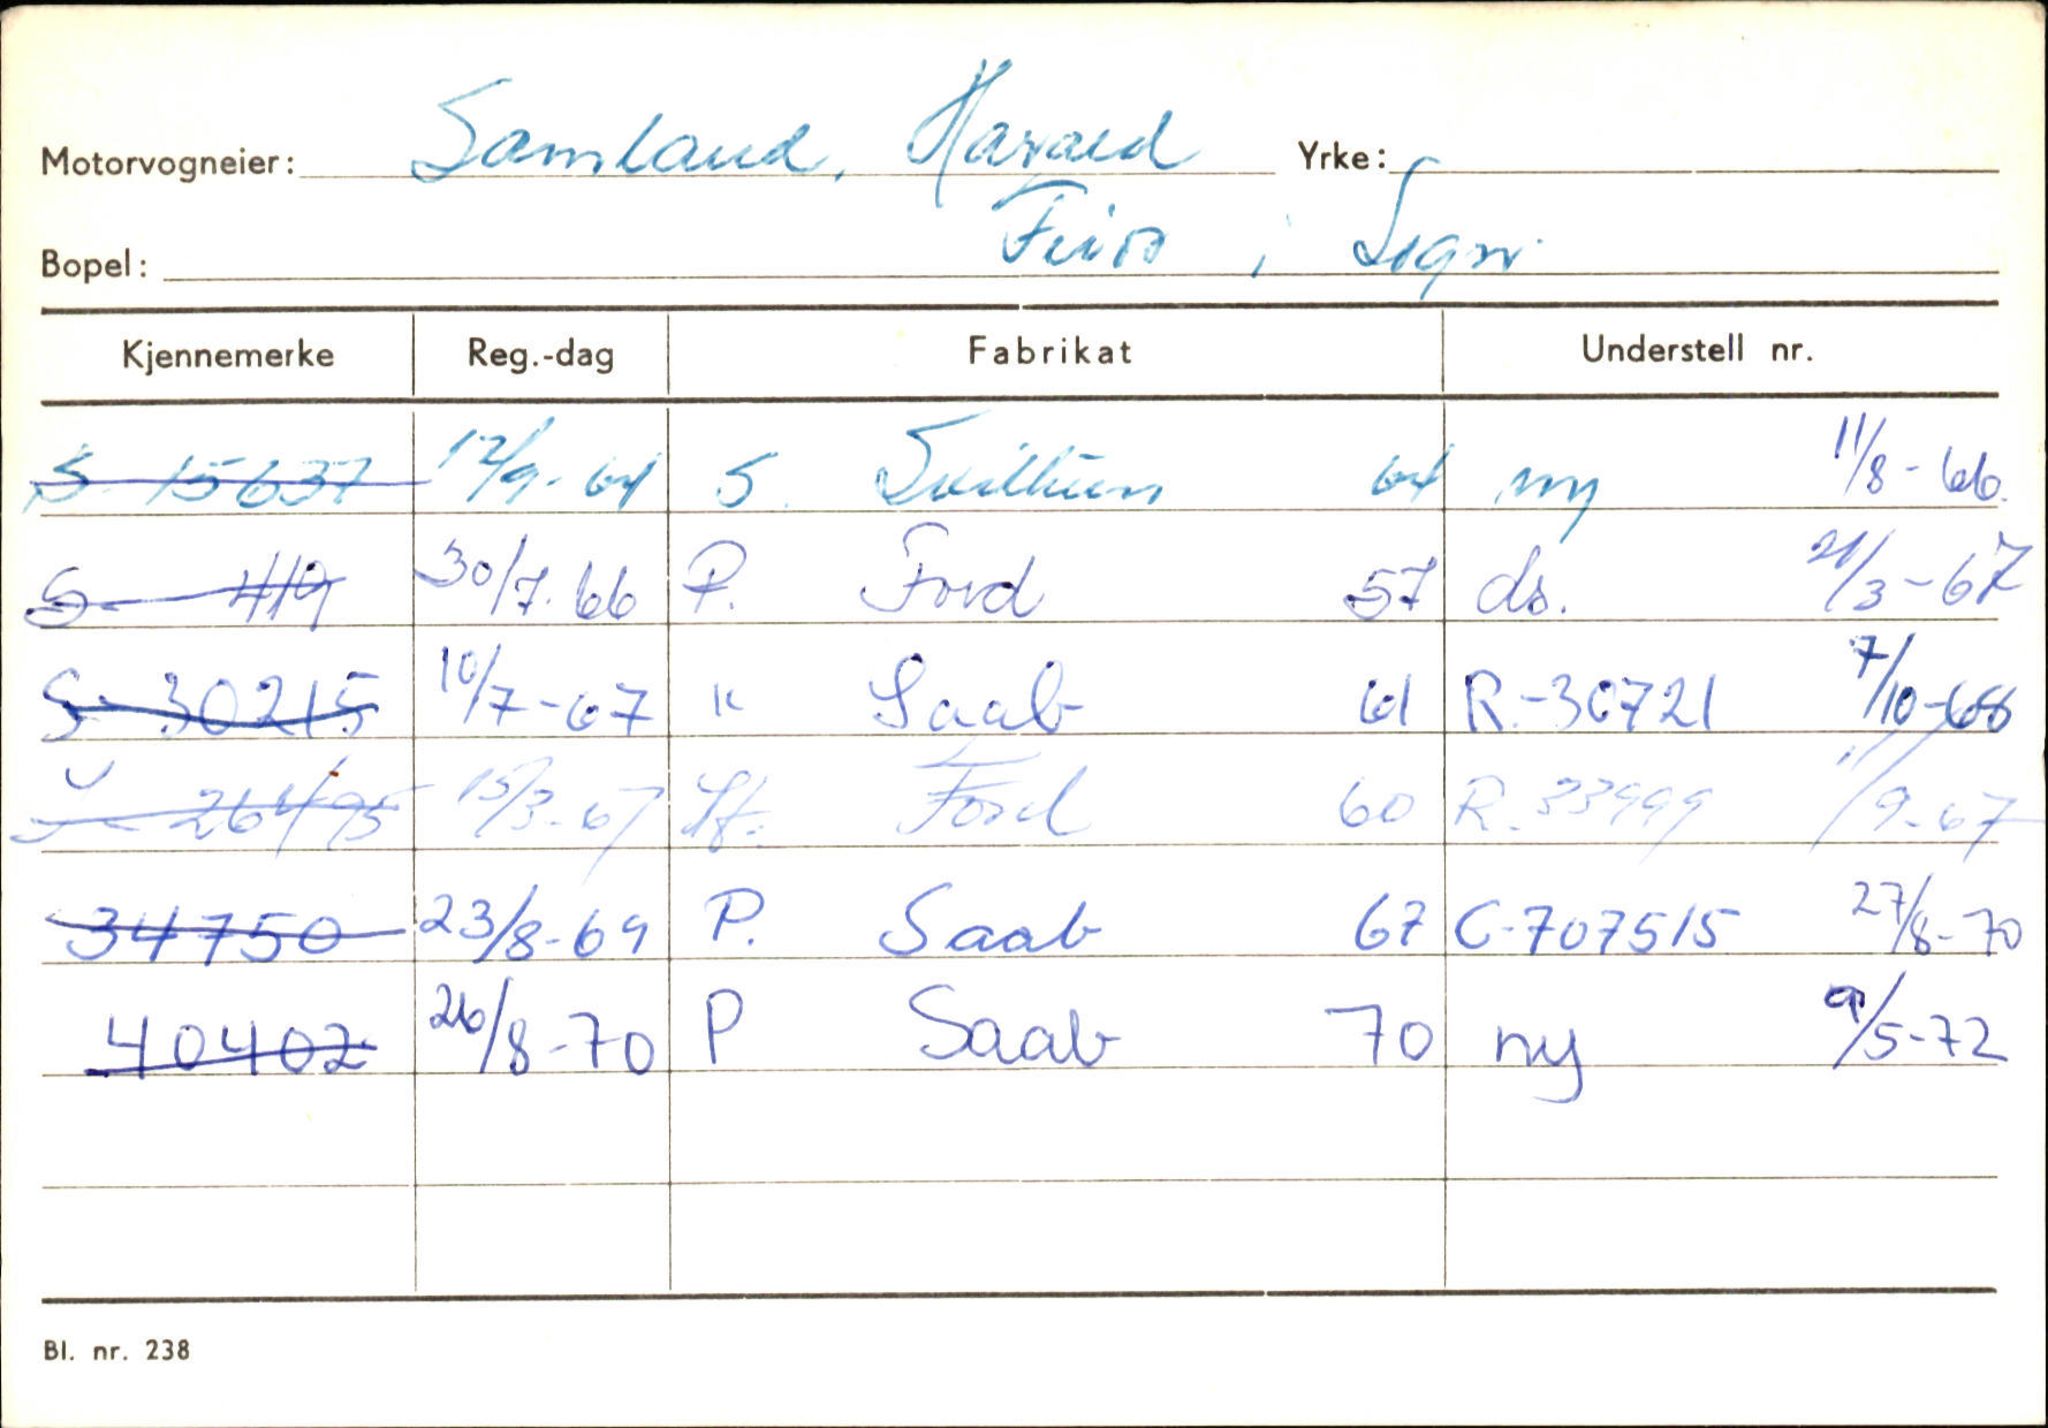 Motorvogneier: Samland, Harald Yrke:
Bopel: Feios i Sogn
Kjennemerke Reg.-dag Fabrikat Understell nr.
S 15637 12/9-64 S. Svithun 64 ny 11/8-66
S- 419 30/7.66 P. Ford 57 ds. 21/3-67
S- 30215 10/7-67 " Saab 61 R.-30721 7/10-68
26495 15/3-67 St. Ford 60 R. 33999 11/9-67
34750 23/8-69 P. Saab 67 C-707515 27/8-70
40402 26/8-70 P Saab 70 ny 9/5-72
Bl. nr. 238